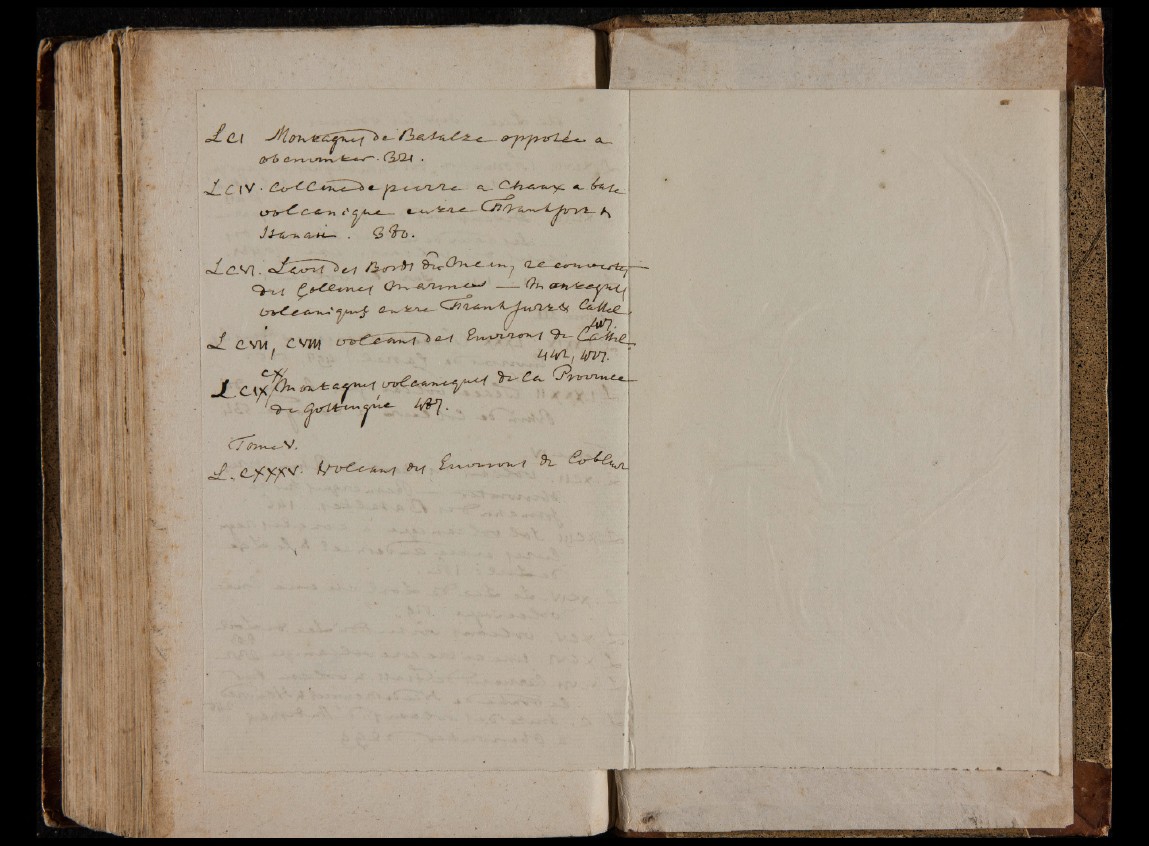 L CI Montagnes de Basalte opposées a
obenwinter. 321.
L CIV. Colline de pierre a Chaux a base
volcanique entre Frankfort &
Hanau. 380.
L CVI. Laves des Bords du Mein, recouvertes
des Collines Marines — Montagnes
volcaniques entre Frankfurt & Cassel
407.
L CVII, CVIII volcans des Environs de Cassel
442,
CX
L CIX Montagnes volcaniques de la Province
de Gottingue 487.
Tome V.
L. CXXXV. Volcans des Environs de Coblentz